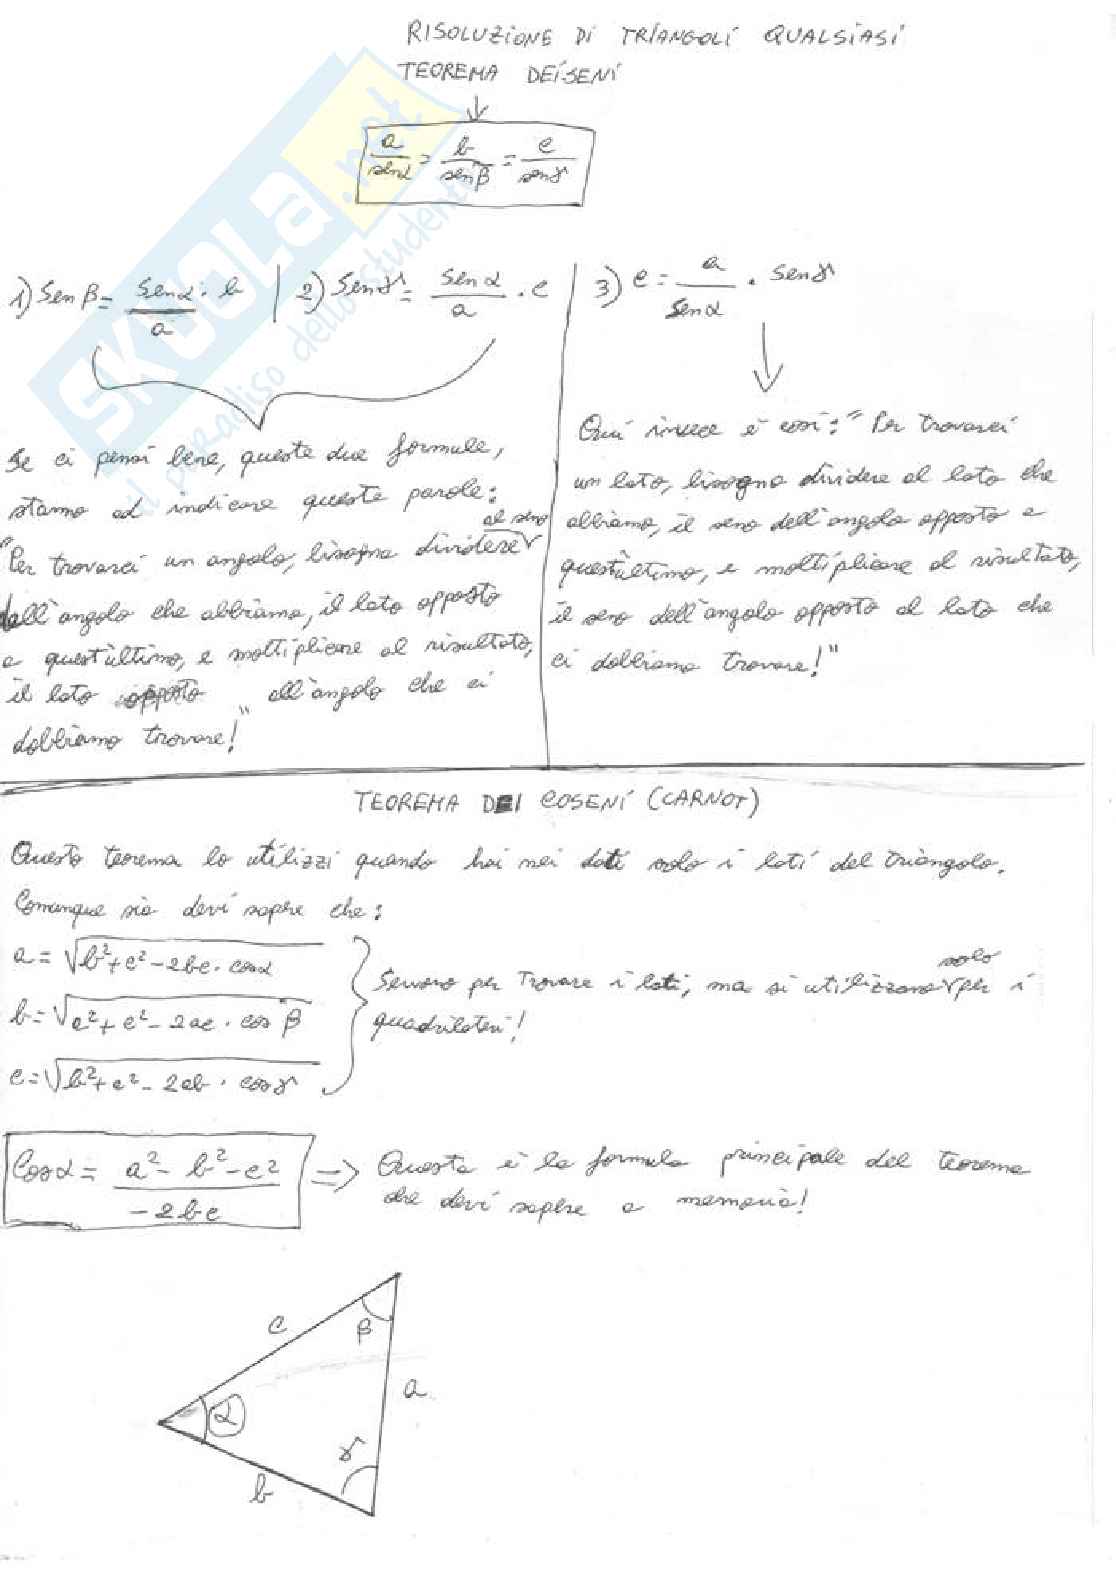 RISOLUZIONE DI TRIANGOLI QUALSIASI
TEOREMA DEI SENI
a/senα = b/senβ = c/senγ
1) Sen β = senα/a · b | 2) Senγ = senα/a · c | 3) c = a/senα · senγ
Se ci pensi bene, queste due formule,
stanno ad indicare queste parole:
"Per trovarci un angolo, bisogna dividere al seno
dell'angolo che abbiamo, il lato opposto
a quest'ultimo, e moltiplicare al risultato,
il lato opposto all'angolo che ci
dobbiamo trovare!"
Qui invece è così: "Per trovarci
un lato, bisogna dividere al lato che
abbiamo, il seno dell'angolo opposto a
quest'ultimo, e moltiplicare al risultato,
il seno dell'angolo opposto al lato che
ci dobbiamo trovare!"
TEOREMA DEI COSENI (CARNOT)
Questo teorema lo utilizzi quando hai nei dati solo i lati del triangolo.
Comunque sia devi sapere che:
a = √b²+c²-2bc · cosα
b = √a²+c²-2ac · cos β
c = √b²+a²-2ab · cosγ
Servono per trovare i lati, ma si utilizzano solo per i
quadrilateri!
Cosα = a²-b²-c²/-2bc => Questa è la formula principale del teorema
che devi sapere a memoria!
c
β
a
α
γ
b
SKUOLA.net
il paradiso dello studente